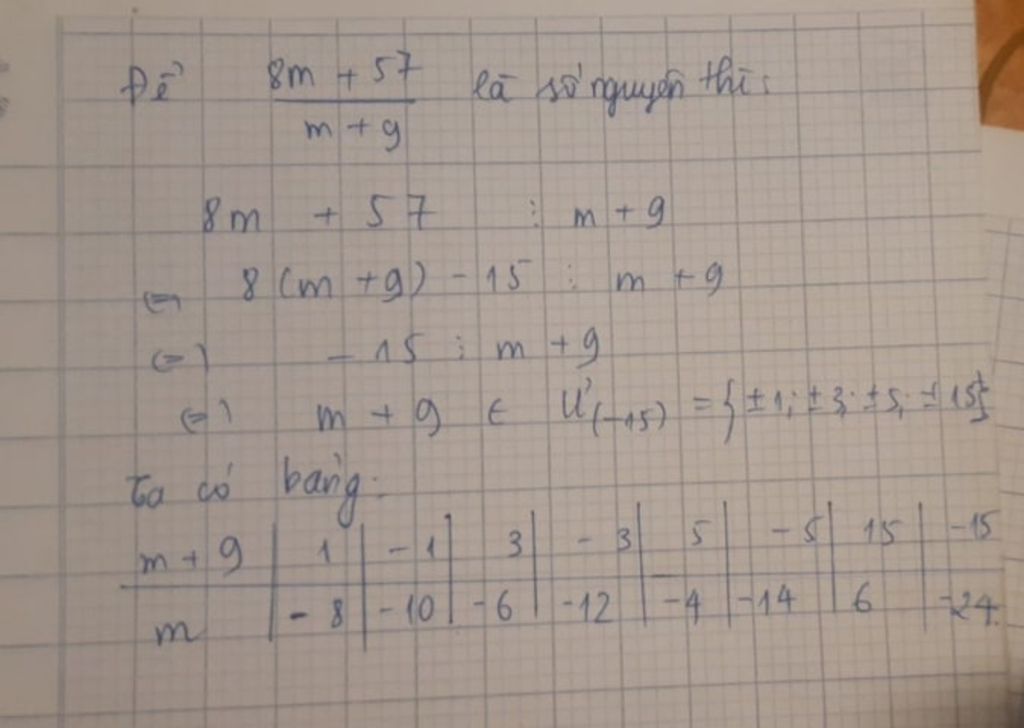 Để 8m + 57 / m + 9 là số nguyên thì:
8m + 57 ⋮ m + 9
<=> 8(m + 9) - 15 ⋮ m + 9
<=> - 15 ⋮ m + 9
<=> m + 9 ∈ Ư(-15) = {±1; ±3; ±5; ±15}
Ta có bảng:
m + 9 | 1 | -1 | 3 | -3 | 5 | -5 | 15 | -15
m | -8 | -10 | -6 | -12 | -4 | -14 | 6 | -24